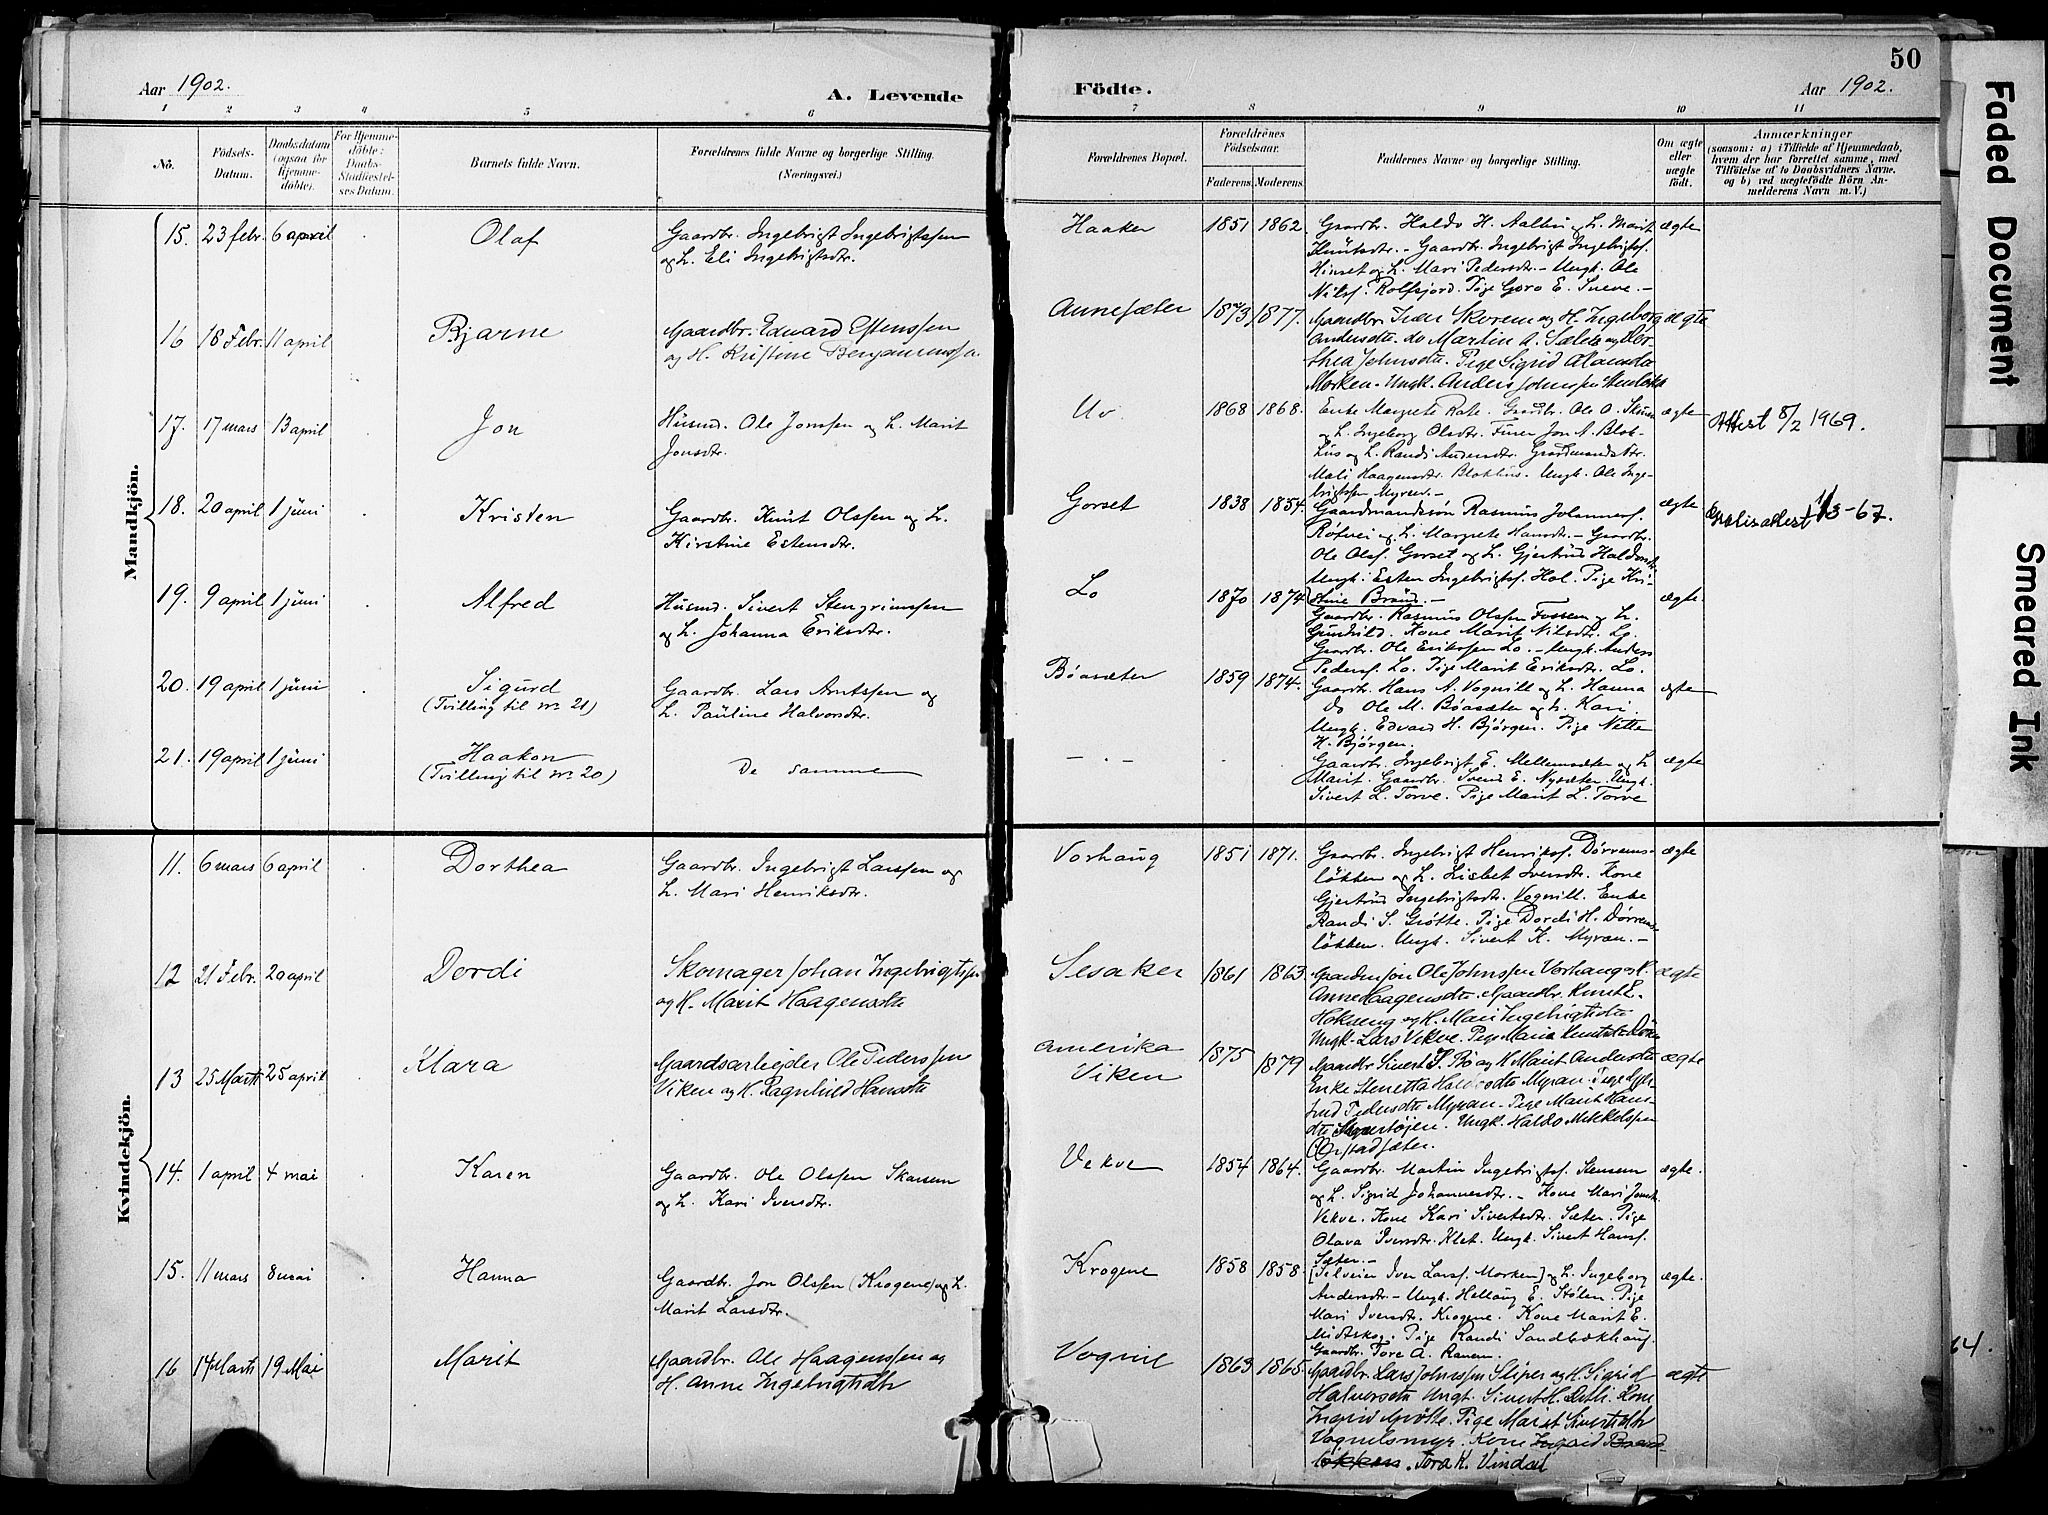 50
Aar 1902.
A. Levende
Födte.
Aar 1902.
1 2 3 4 5 6 7 8 9 10 11
No.
Födsels-
Datum.
Daabsdatum
(ogsaa for
Hjemme-
döbte).
For Hjemme-
döbte:
Daabs-
Stadfæstel-
ses Datum.
Barnets fulde Navn.
Forældrenes fulde Navne og borgerlige Stilling.
(Næringsvei.)
Forældrenes Bopæl.
Forældrenes
Födselsaar.
Faderens. Moderens.
Faddernes Navne og borgerlige Stilling.
Om ægte
eller
uægte
födt.
Anmærkninger
(saasom: a) i Tilfælde af Hjemmedaab,
hvem der har forrettet samme, med
Tilföielse af to Daabsvidners Navne,
og b) ved uægtefödte Börn An-
melderens Navn m. V.)
Mandkjön.
15. 23 febr. 6 april Olaf
Gaardbr. Ingebrigt Ingebrigtssen
og h. Eli Ingebrigtsdtr.
Haaker 1851 1862.
Gaardbr. Haldo H. Aalbu og h. Marit
Knutsdtr. - Gaardbr. Ingebrigt Ingebrigtsf.
Hinset og h. Mari Pedersdtr. - Ungk. Ole
Nilsf. Rolfsjord. Pige Goro E. Sneve. -
ægte
16 18 Febr. 11 april Bjarne
Gaardbr. Eduard Estenssen
og H. Kristine Benjaminss
Annesæter 1873 1877.
Gaardbr. Ivar Skorem og H. Ingeborg
Andersdtr. do Martin A. Sæle og Dor-
thea Johnsdtr. Pige Sigrid
Morken - Ungk. Anders Johnssen
ægte
17. 17 mars 13 april Jon
Husmd. Ole Jonssen og h. Marit
Jonsdtr.
Uv. 1868 1868.
Enke Margrete Rate. Gaardbr. Ole O. Skuen
og h. Ingeborg Olsdtr. Jon A. Blok-
hus og h. Randi Andersdtr. Gaardmandsdtr.
Mali Haagensdtr. Blokhus. Ungk. Ole Inge-
brigtssen Myren. -
ægte
Attest 8/2 1969.
18. 20 april 1 juni Kristen
Gaardbr. Knut Olssen og h.
Kirstine Estensdtr.
Gorset 1838 1854.
Gaardmandssön Rasmus Johannesf.
Röfvei og h. Margrete Hansdtr. - Gaardbr.
Ole Olsf. Gorset og h. Gjertrud Haldosdtr
Ungk: Esten Ingebrigtsf. Hol. Pige Kri-
stine Brand. -
ægte
1/3-67.
19. 9 april 1 juni Alfred
Husmd. Sivert Stengrimssen
og h. Johanna Eriksdtr.
Lo 1870 1874
Gaardbr. Rasmus Olssen Fossem og h.
Gunhild. Kone Marit Nilsdtr. Lo.
Gaardbr. Ole Erikssen Lo. - Ungk. Anders
Pedersf. Lo. Pige Marit Eriksdtr. Lo.
ægte.
20. 19 april 1 juni Sigurd
(Tvilling til nr. 21)
Gaardbr. Lars Arntssen og
h. Pauline Halvorsdtr.
Böasæter 1859 1874.
Gaardbr. Hans A. Vognill og h. Hanna
do Ole M. Böasæter og h. Kari.
Ungk. Edvard H. Björgen. Pige Nette
H. Björgen.
ægte
21. 19 april 1 juni Haakon
(Tvilling til nr. 20)
De samme
- . -
Gaardbr. Ingebrigt E. Mellemsæter og h
Marit. Gaardbr. Svend E. Nysæter. Ungk.
Sivert L. Torve. Pige Marit L. Torve
ægte
Kvindekjön.
11. 6 mars 6 april Dorthea
Gaardbr. Ingebrigt Larssen og
h. Mari Henriksdtr.
Vorhaug 1851 1871.
Gaardbr. Ingebrigt Henriksf. Dörrems-
lökken og h. Lisbet Svendsdtr. Kone
Gjertrud Ingebrigtsdtr. Vognill. Enke
Randi S. Grötte. Pige Dordi H. Dörrems-
lökken. Ungk. Sivert K. Myran. -
ægte
12 21 Febr. 20 april Dordi
Skomager Johan Ingebrigtssen
og H. Marit Haagensdtr
Sesaker 1861 1863.
Gaardmsön Ole Johnssen Vorhaug og H.
Anne Haagensdtr. Gaardbr. Knut E.
Hokseng og H. Mari Ingebrigtsdtr
Ungk. Lars Vekve. Pige Maria Knutsdtr
ægte
13 25 Marts 25 april Klara
Gaardsarbejder Ole Pederssen
Viken og H. Ragnhild Hansdtr
Amerika
Viken 1875 1879
Gaardbr Sivert S. Bö og H Marit Andersdtr
Enke Stenetta Haldosdtr Myran. Pige Gjer-
trud Pedersdtr Myran - Pige Marit Hans-
dtr. Ungk. Haldo Mikkelssen
Örstadsæter.
ægte
14. 1 april 4 mai Karen
Gaardbr. Ole Olssen Skarsem
og h. Kari Iversdtr.
Vekve 1854 1864.
Gaardbr. Martin Ingebrigtsf. Stensem
og h. Sigrid Johannesdtr. - Kone Mari Jonsdtr.
Vekve. Kone Kari Sivertsdtr. Sæter. Pige
Olava Iversdtr. Klet. Ungk. Sivert Hansf.
Sæter. -
ægte.
15. 11 mars 8 mai Hanna
Gaardbr. Jon Olssen (Krogene) og h.
Marit Larsdtr.
Krogene 1858 1858.
[Selveier Iver Larsf. Morken] og h. Ingeborg
Andersdtr. - Ungk. Hellaug E. Stölen. Pige
Mari Iversdtr. Krogene. Kone Marit E.
Midtskog. Pige Randi Sandbækhaug.
Gaardbr. Tore A. Ranem.
ægte.
16 14 Marts 19 Mai Marit
Gaardbr. Ole Haagenssen og
H. Anne Ingebrigtsdtr
Vognil 1863 1865.
Gaardbr. Lars Johnssen Sliper og H. Sigrid
Halvorsdtr Ungk. Sivert H. Detli Kone
Ingrid Grötte. Pige Marit Sivertsdtr
Vognilsmyr. Kone Ingrid
Tora K. Vindal
ægte
Faded Document
Smeared Ink
64.